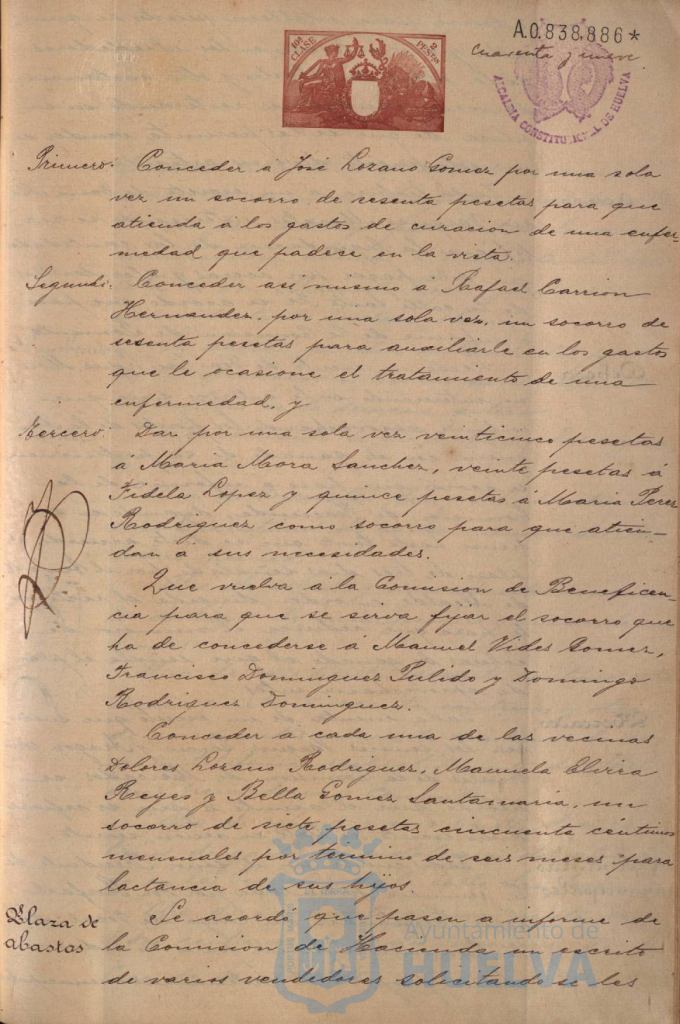 10ª CLASE 2 PESETAS
A.0.838,886*
cuarenta y nueve
ALCALDIA CONSTITUCIONAL DE HUELVA
Primero: Conceder á José Lozano Gomez por una sola
vez un socorro de sesenta pesetas para que
atienda á los gastos de curacion de una enfer-
medad que padece en la vista.
Segundo: Conceder asi mismo á Rafael Carrion
Hernandez, por una sola vez, un socorro de
sesenta pesetas para auxiliarle en los gastos
que le ocasione el tratamiento de una
enfermedad, y
Tercero: Dar por una sola vez veinticinco pesetas
á Maria Mora Sanchez, veinte pesetas á
Fidela Lopez y quince pesetas á Maria Perez
Rodriguez como socorro para que atien-
dan á sus necesidades.
Que vuelva á la Comision de Beneficen-
cia para que se sirva fijar el socorro que
ha de concederse á Manuel Vides Gomez,
Francisco Dominguez Pulido y Domingo
Rodriguez Dominguez.
Conceder a cada una de las vecinas
Dolores Lozano Rodriguez, Manuela Elvira
Reyes y Bella Gomez Santamaría, un
socorro de siete pesetas cincuenta céntimos
mensuales por término de seis meses para
lactancia de sus hijos.
Plaza de abastos
Se acordó que pasen a informe de
la Comision de Hacienda un escrito
de varios vendedores solicitando se les
Ayuntamiento de
HUELVA